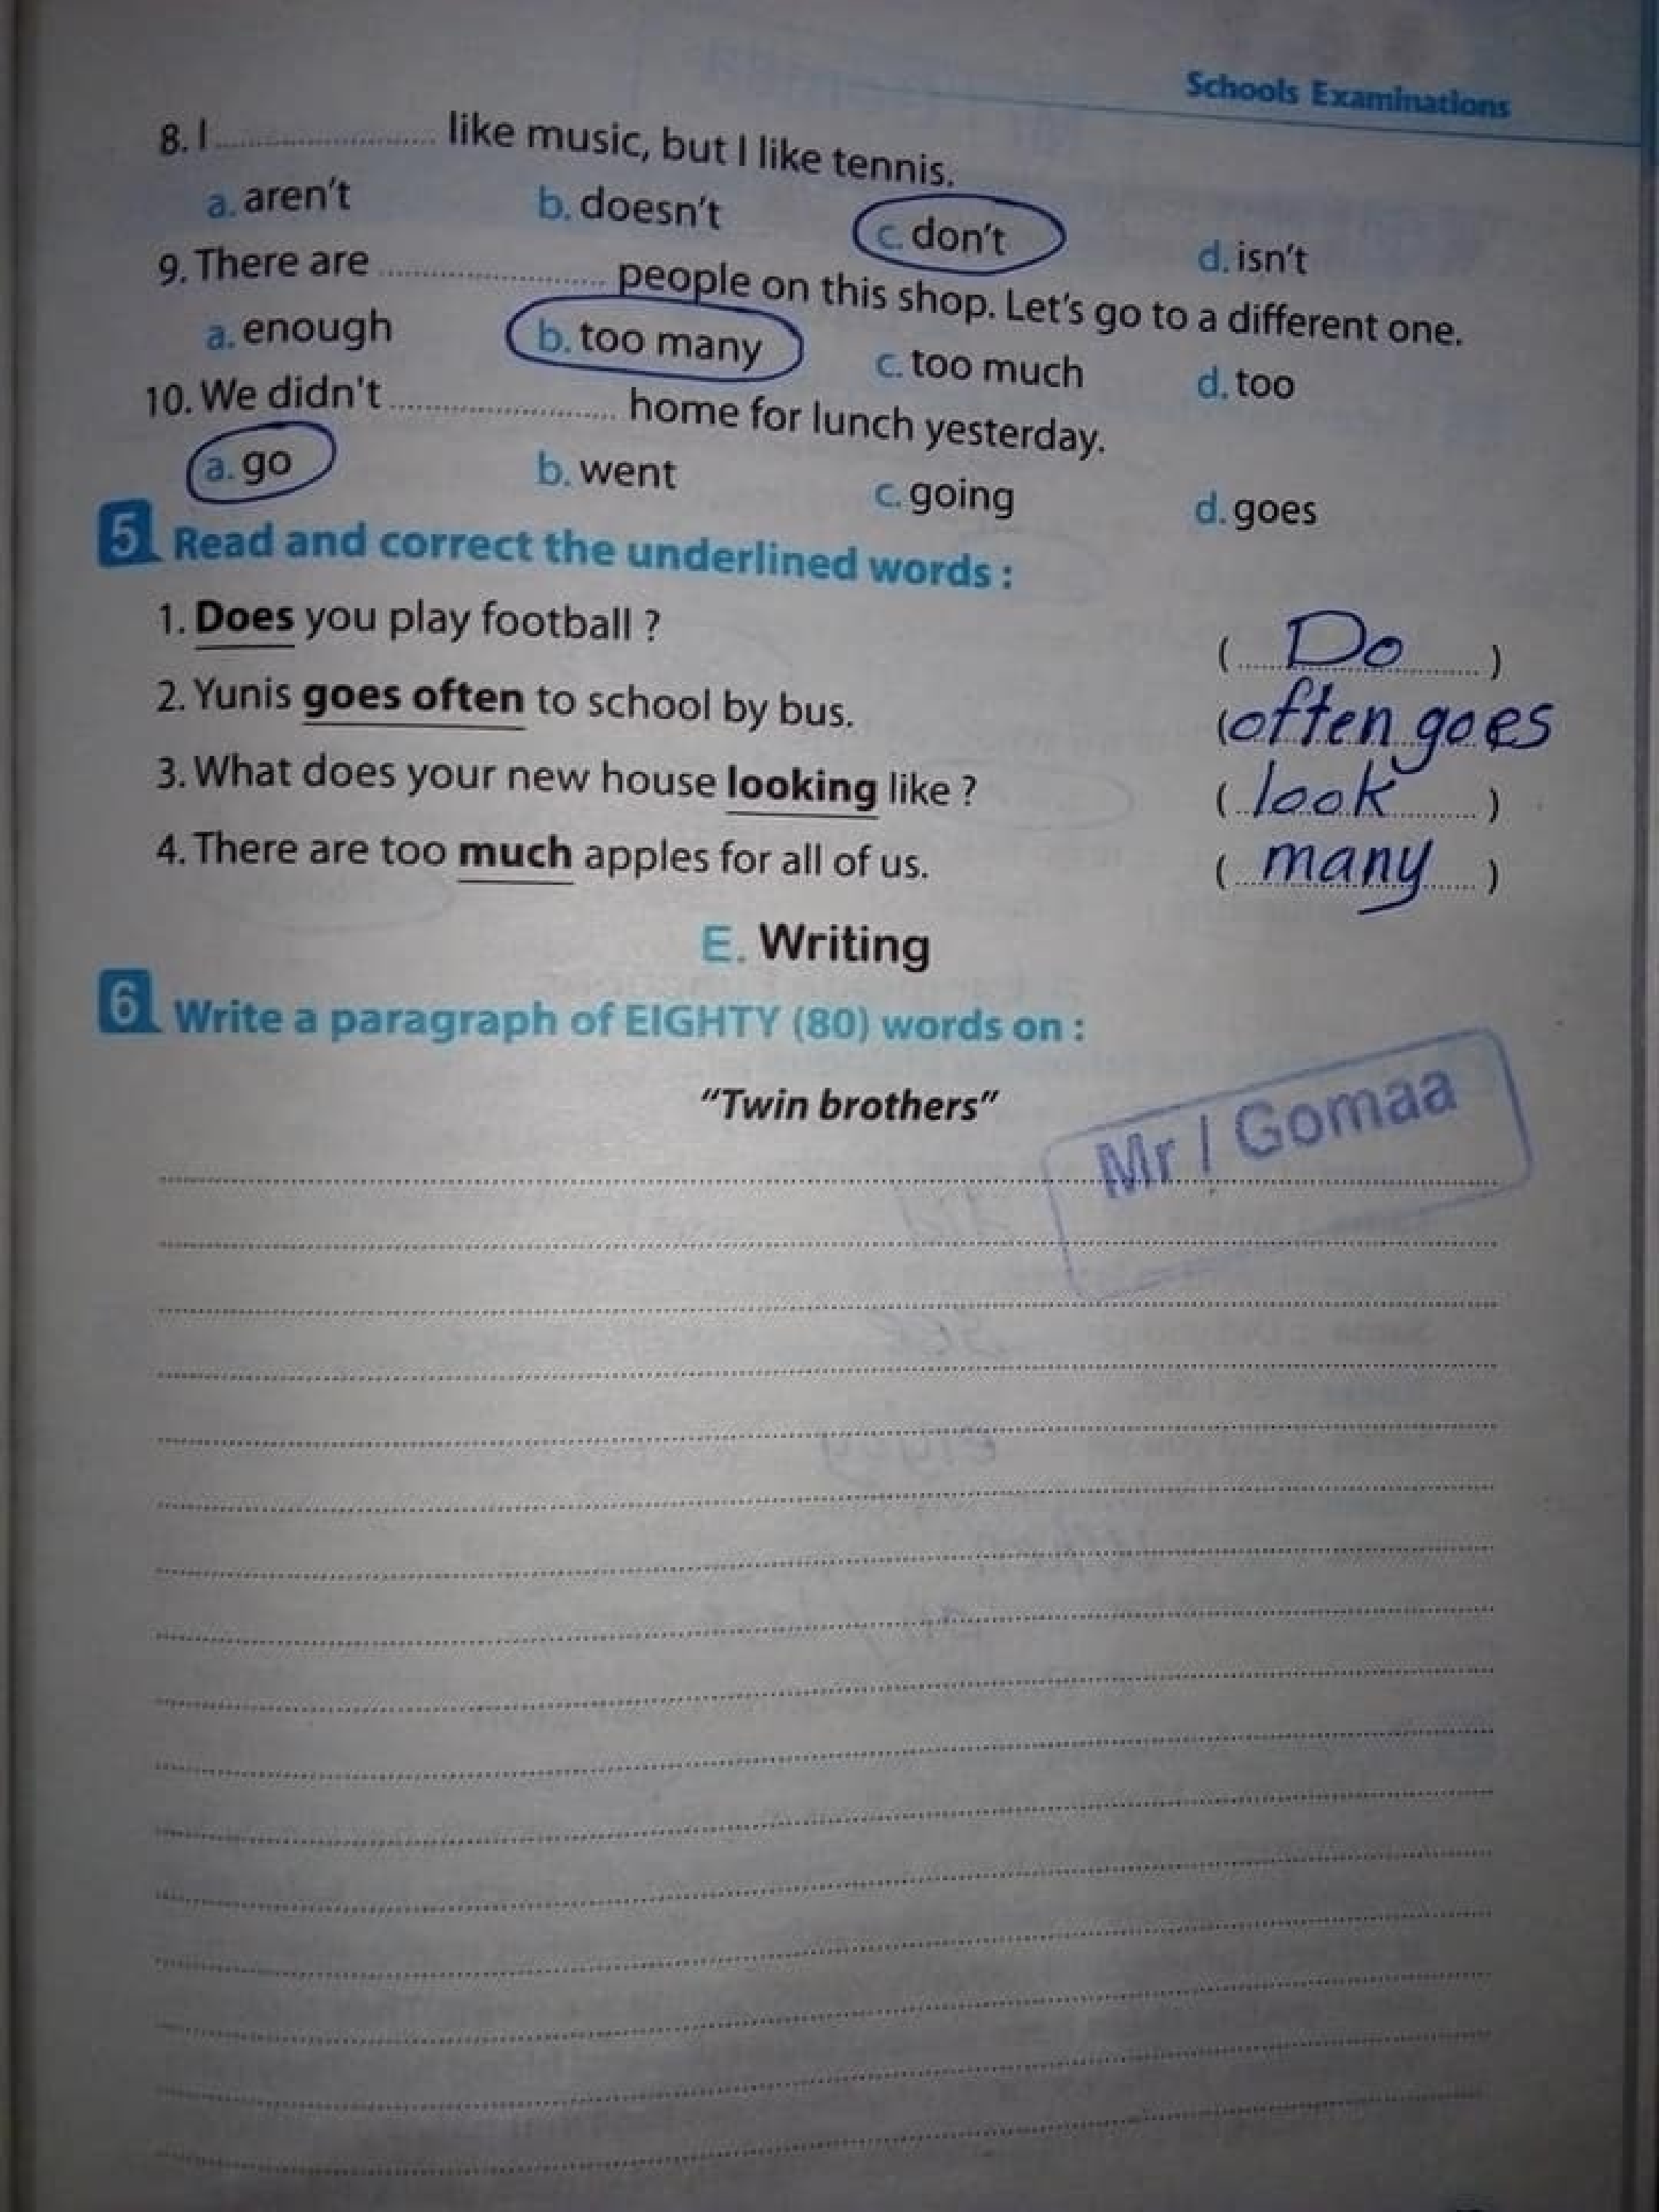 Schools Examinations
8. I .................... like music, but I like tennis.
a. aren't b. doesn't c. don't d. isn't
9. There are .................... people on this shop. Let's go to a different one.
a. enough b. too many c. too much d. too
10. We didn't .................... home for lunch yesterday.
a. go b. went c. going d. goes
5 Read and correct the underlined words :
1. Does you play football ? (Do)
2. Yunis goes often to school by bus. (often goes
3. What does your new house looking like ? (look)
4. There are too much apples for all of us. (many)
E. Writing
6 Write a paragraph of EIGHTY (80) words on :
"Twin brothers"
Mr / Gomaa